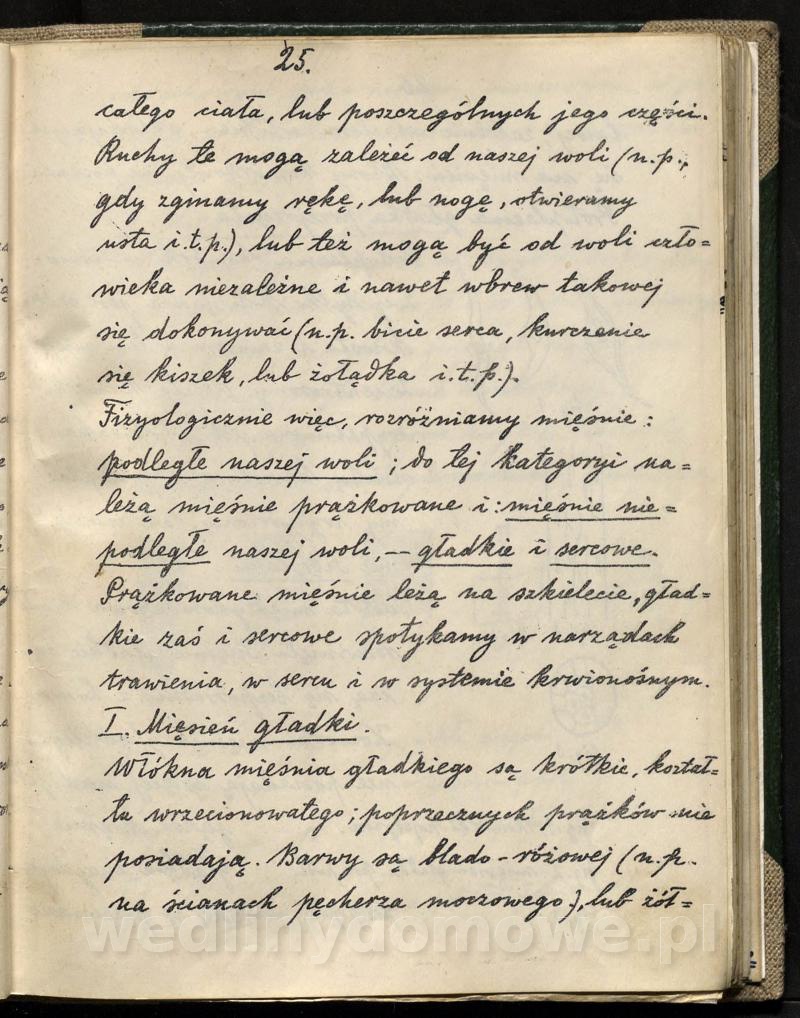 25.
całego ciała, lub poszczególnych jego części.
Ruchy te mogą zależeć od naszej woli (n.p.,
gdy zginamy rękę, lub nogę, otwieramy
usta i.t.p.), lub też mogą być od woli czło=
wieka niezależne i nawet wbrew takowej
się dokonywać (n.p. bicie serca, kurczenie
się kiszek, lub żołądka i.t.p.).
Fizyologicznie więc, rozróżniamy mięśnie:
podległe naszej woli; do tej kategoryi na=
leżą mięśnie prążkowane i: mięśnie nie=
podległe naszej woli, -- gładkie i sercowe.
Prążkowane mięśnie leżą na szkielecie, gład=
kie zaś i sercowe spotykamy w narządach
trawienia, w sercu i w systemie krwionośnym.
I. Mięsień gładki.
Włókna mięśnia gładkiego są krótkie, kształ=
tu wrzecionowatego; poprzecznych prążków nie
posiadają. Barwy są blado-różowej (n.p.
na ścianach pęcherza moczowego), lub żół=
wedlinydomowe.pl